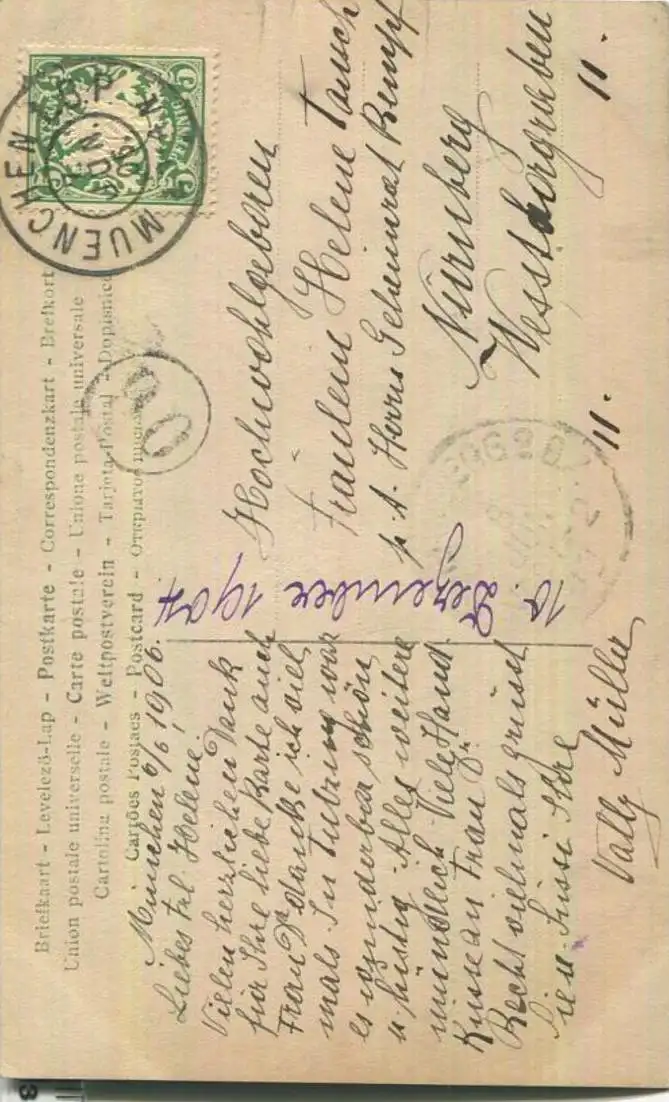 Briefkaart - Levelező-Lap - Postkarte - Correspondenzkart - Brefkort
Union postale universelle - Carte postale - Unione postale universale
Cartolina postale - Weltpostverein - Tarjeta Postal - Dopisnice
Cartões Postaes - Postcard - Открытое письмо
MUENCHEN
BAYERN
München 6/6 1906.
Liebes Frl. Helene!
Vielen herzlichen Dank
für Ihre liebe Karte auch
Frau Dr danke ich viel
mals. In Tutzing war
es wunderbar schön
u. lustig. Alles weitere
mündlich. Viele Hand
Küsse an Frau Dr.
Recht vielmals grüsst
Sie u. Sussi Ihre
Vally Müller
10. Dezember 1907
Hochwohlgeboren
Fräulein Helene
p. A. Herrn Geheimrat
Nürnberg
11. 11.